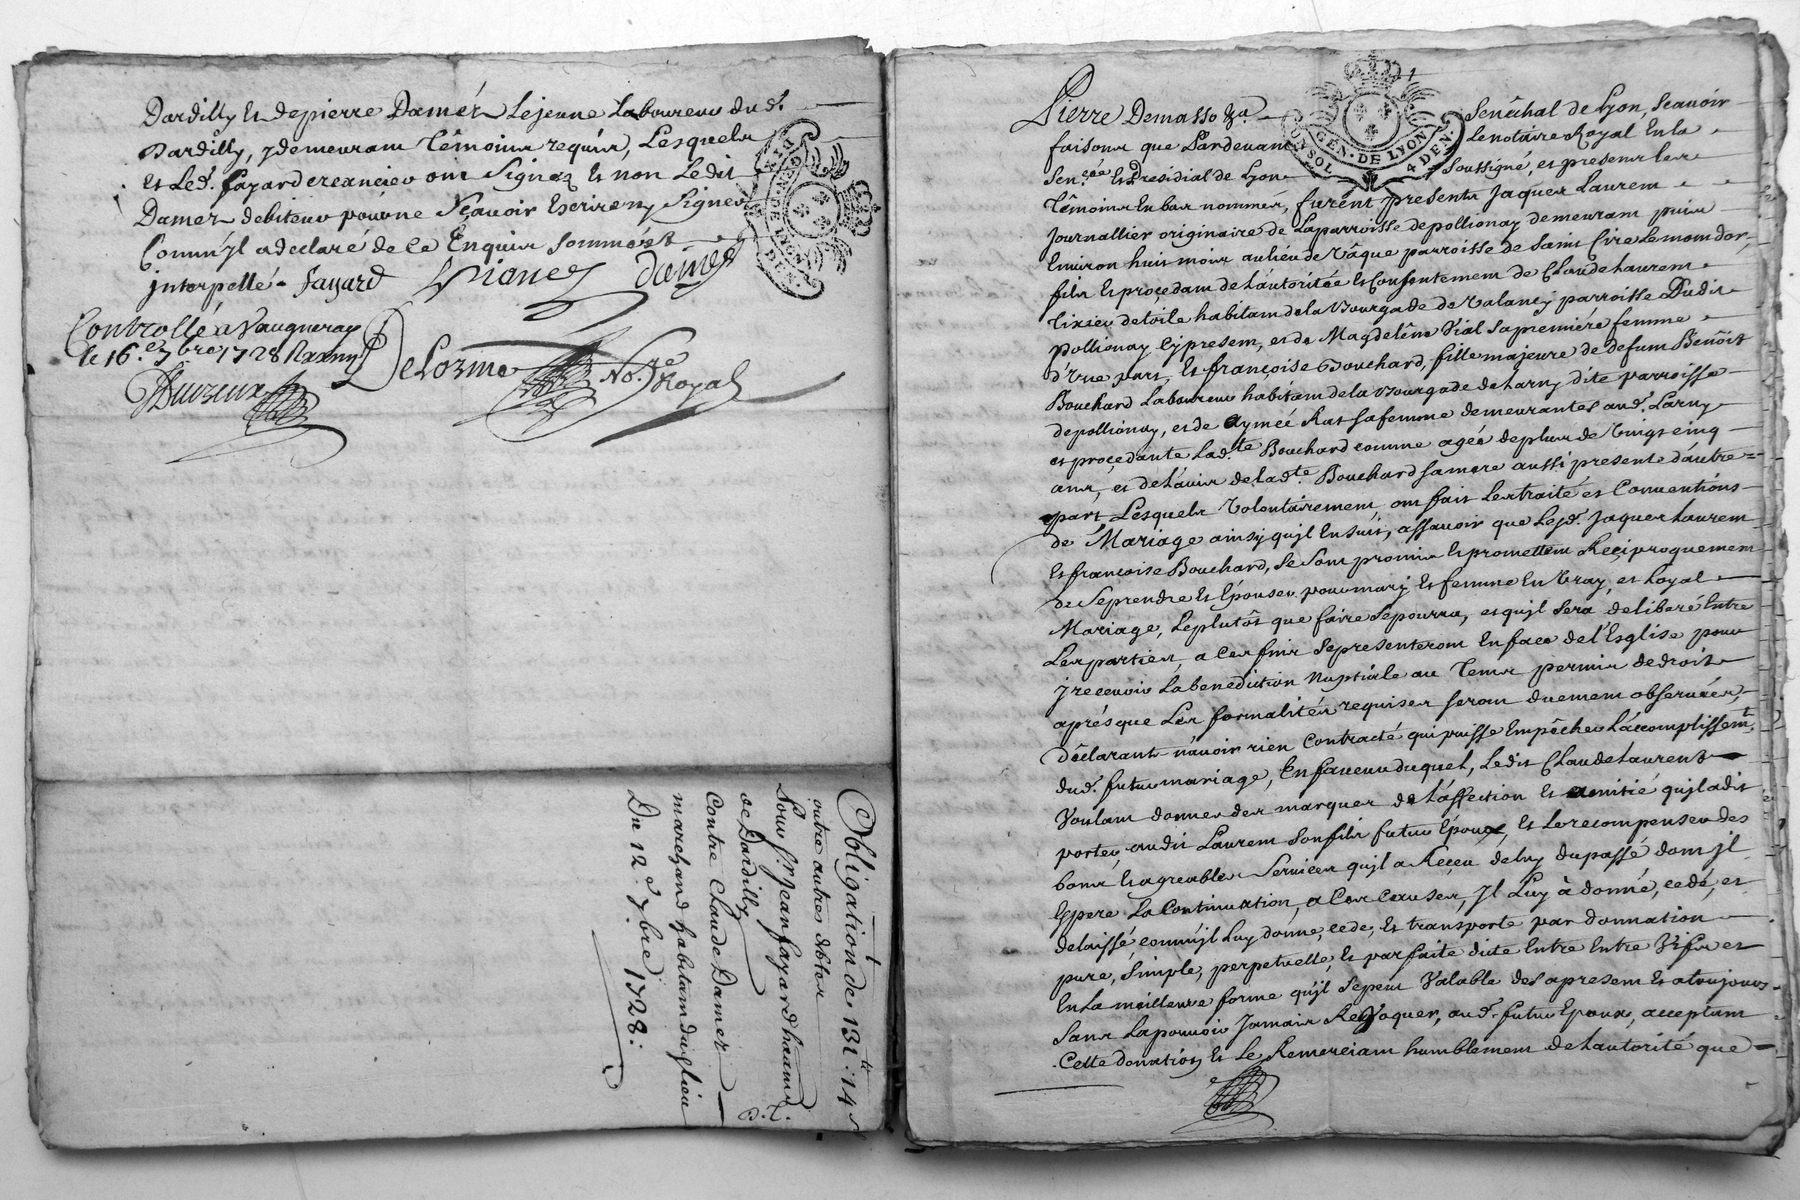 Dardilly Et de pierre Damés Lejeune Laboureur du d.
Dardilly, y demeurant Têmoins requis, Lesquels
et Led. fayard creancier ont Signez Et non Ledit
Damez debiteur pour ne Sçavoir Escrire ny Signer
Comm'jl a declaré de ce Enquis sommé et
jnterpellé. fayard Vianey dames
Controllé a Vaugneray
le 16.e 7bre 1728
DeLorme No.re Royal
Obligation de 131.lt 14 s
outre autres debtes
Pour Sr. jean fayard
de Dardilly
Contre Claude Damez
marchand habitant du, lieu
Du 12.e 7bre 1728.
D.L.
GEN. DE LYON
4 DEN.
Pierre Demasso &a. Senêchal de Lyon, Scavoir
faisons que Pardevant Le notaire Royal En la
Sen.cée Et Presidial de Lyon Soussigné, et presents les
Têmoins En bas nommés, furent presents Jaques Laurent
Journallier originaire de La parroisse de pollionay demeurant puis
Environ huit mois au lieu de Vâque parroisse de Saint Cire Le mont d'or,
fils Et proçedant de L'autoritée Et Consentement de Claude Laurent
Tixier de toile habitant de la Bourgade de Valancy parroisse Dudit
Pollionay Cy present, et de Magdelêne Vial Sa premiére femme
d'Une part, Et françoise Bouchard, fille majeure de defunt Benôit
Bouchard Laboureur habitant de la Bourgade de Larny dite parroisse
de pollionay, et de Aymée Ras sa femme demeurantes aud. Larny
et proçedante Lad.te Bouchard comme agée de plus de Vingt cinq
ans, et de L'avis de lad.te Bouchard sa mere aussi presente d'autre
part Lesquels Volontairement, ont fait Les traité et Conventions
de Mariage ainsy qu'jl En Suit, assavoir que Led. Jaques Laurent
Et francoise Bouchard, Se Sont promis Et promettent Reçiproquement
de Se prendre Et Epouser pour mary Et femme En Vray, et Loyal
Mariage, Le plutôt que faire Se pourra, et qu'jl Sera deliberé Entre
Les parties, a Ces fins Se presenteront En face de l'Esglise pour
y recevoir La benediction Nuptiale au Tems permis de droit
aprés que Les formalités requises seront duement observées,
Déclarant n'avoir rien Contracté qui puisse Empêcher L'accomplissemt.
dud. futur mariage, En faveur duquel, Ledit Claude Laurent
Voulant donner des marques de L'affection Et amitié qu'jl a dit
porter audit Laurent Son fils futur Epoux, Et Le recompenser des
bons Et agreables Services qu'jl a Reçeu de luy du passé dont jl
Espere La Continuation, a Ces Causes, Jl Luy à donné, cedé, et
delaissé, comm'jl Luy donne, cede, Et transporte par donnation
pure, Simple, perpetuelle, Et parfaite dite Entre Entre Vifs et
En La meilleure forme qu'jl Se peut Valable des apresent Et a toujours
Sans La pouvoir Jamais Revoquer, aud. futur Epoux, acceptant
Cette donation Et Le Remerciant humblement de L'autorité que